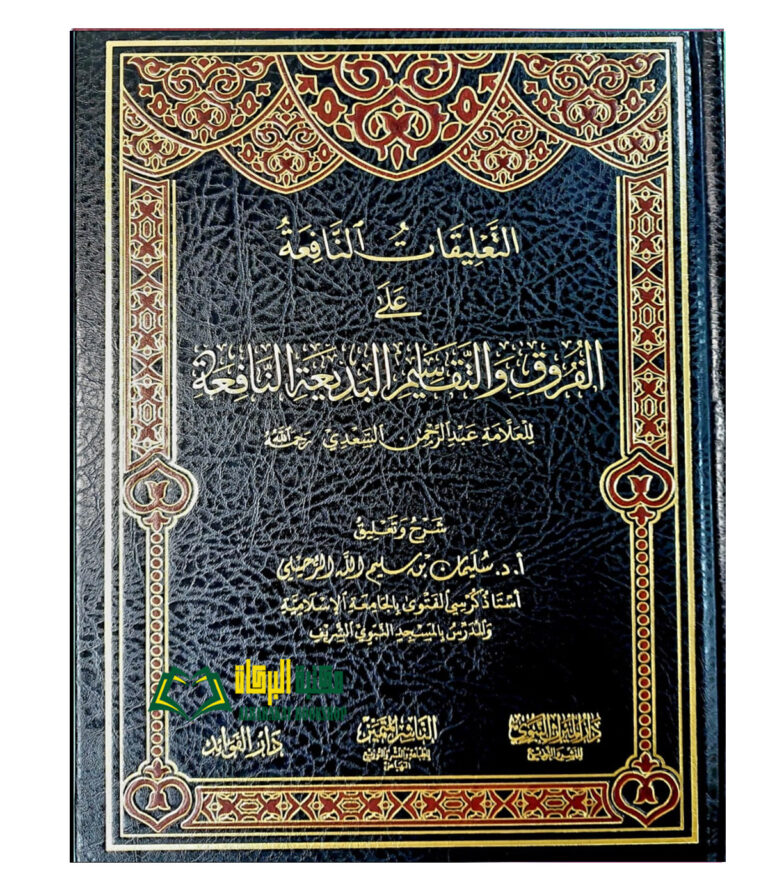 التَّعْلِيقَاتُ النَّافِعَةُ
عَلَى
الفُرُوقِ وَالتَّقَاسِيمِ البَدِيعَةِ النَّافِعَةِ
لِلعَلَّامَةِ عَبْدِ الرَّحْمٰنِ السَّعْدِيِّ رَحِمَهُ اللهُ
شَرْحُ وَتَعْلِيقُ
أ.د. سُلَيْمَان بْن سَلِيمِ اللهِ الرُّحَيْلِي
أُسْتَاذُ كُرْسِيِّ الفَتْوَى بِالجَامِعَةِ الإِسْلَامِيَّةِ
وَالمُدَرِّسُ بِالمَسْجِدِ النَّبَوِيِّ الشَّرِيفِ
مكتبة البركاة
دَارُ المِيرَاثِ النَّبَوِي
لِلنَّشْرِ وَالتَّوْزِيع
النَّاشِرُ المُتَمَيِّز
لِلطِّبَاعَةِ وَالنَّشْرِ وَالتَّوْزِيعِ
الرِّيَاض
دَارُ الفَوَائِد